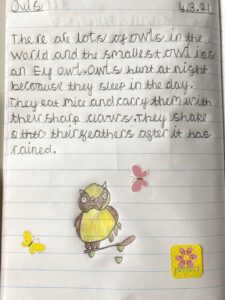 Owls 4.3.21
There are lots of owls in the
world and the smallest owl is
an Elf owl. Owls hunt at night
because they sleep in the day.
They eat mice and carry them with
their sharp claws. They shake
their feathers after it has
rained.
perfect